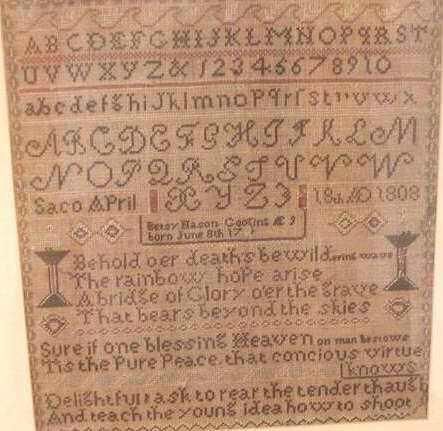 A B C D E F G H I J K L M N O P Q R S T
U V W X Y Z & 1 2 3 4 5 6 7 8 9 10
a b c d e f g h i j k l m n o p q r ſ s t u v w x
A B C D E F G H I J K L M
N O P Q R S T U V W
Saco April X Y Z 3 18th AD 1808
Betsy Nason Æ 9
born June 8th 17
Behold oer deaths bewildering wave
The rainbow hope arise
A bridge of Glory o'er the grave
That bears beyond the skies
Sure if one blessing Heaven on man bestows
Tis the Pure Peace that concious virtue
knows
Delightful task to rear the tender though
And teach the young idea how to shoot